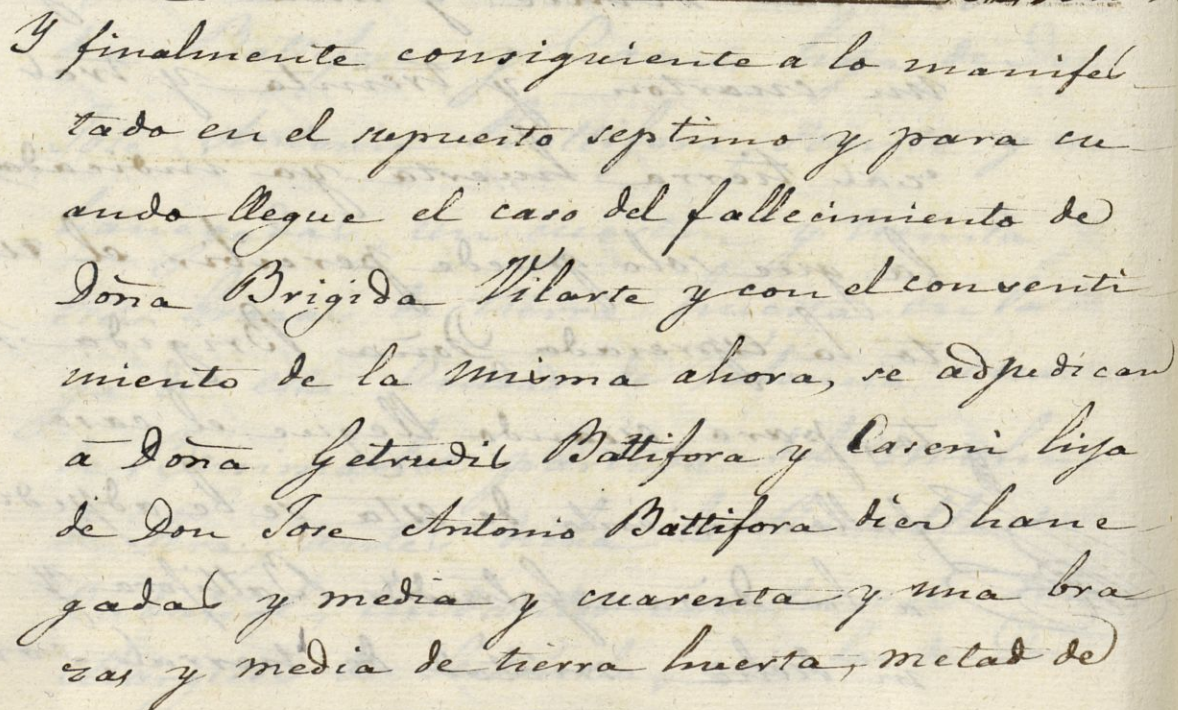 Y finalmente consiguiente a lo manifes
tado en el supuesto septimo y para cu
ando llegue el caso del fallecimiento de
Doña Brigida Vilarte y con el consenti
miento de la misma ahora, se adpedican
a Doña Getrudis Battifora y Caseni hija
de Don Jose Antonio Battifora diez hane
gadas y media y cuarenta y una bra
zas y media de tierra huerta, metad de